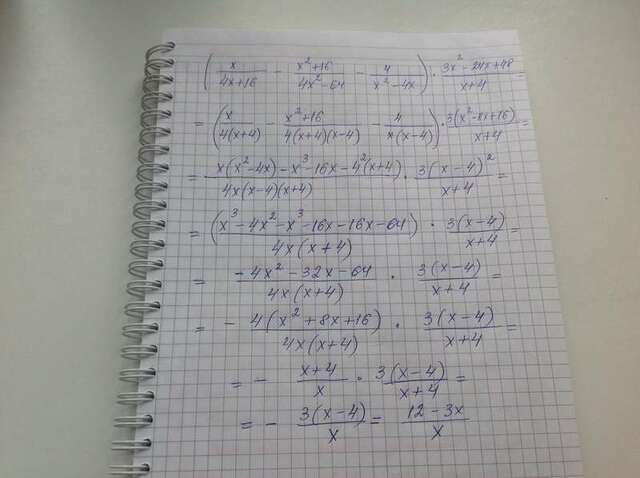 (x/(4x+16) - (x²+16)/(4x²-64) - 4/(x²-4x)) · (3x²-24x+48)/(x+4) =
= (x/(4(x+4)) - (x²+16)/(4(x+4)(x-4)) - 4/(x(x-4))) · 3(x²-8x+16)/(x+4) =
= (x(x²-4x)-x³-16x-4²(x+4))/(4x(x-4)(x+4)) · 3(x-4)²/(x+4) =
= (x³-4x²-x³-16x-16x-64)/(4x(x+4)) · 3(x-4)/(x+4) =
= (-4x²-32x-64)/(4x(x+4)) · 3(x-4)/(x+4) =
= - 4(x²+8x+16)/(4x(x+4)) · 3(x-4)/(x+4) =
= - (x+4)/x · 3(x-4)/(x+4) =
= - 3(x-4)/x = (12-3x)/x